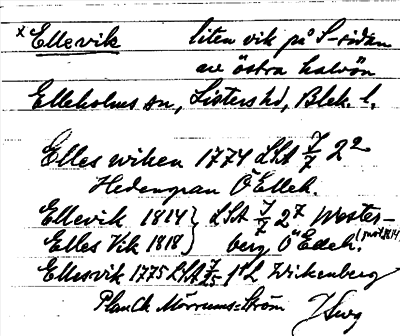 x Ellevik liten vik på S-sidan
av östra halvön
Elleholms sn, Listers hd, Blek. l.
Elles wiken 1774 LSA 7/7 2²
Hedengran Ö Elleh.
Ellevik 1814 } LSA 7/7 2⁷ Wester-
Elles Vik 1818 } berg Ö Elleh. (prot 1814)
Ellesvik 1775 LSA 7/25 f° 2 Wickenberg
Plan Ch Mörrums=Ström